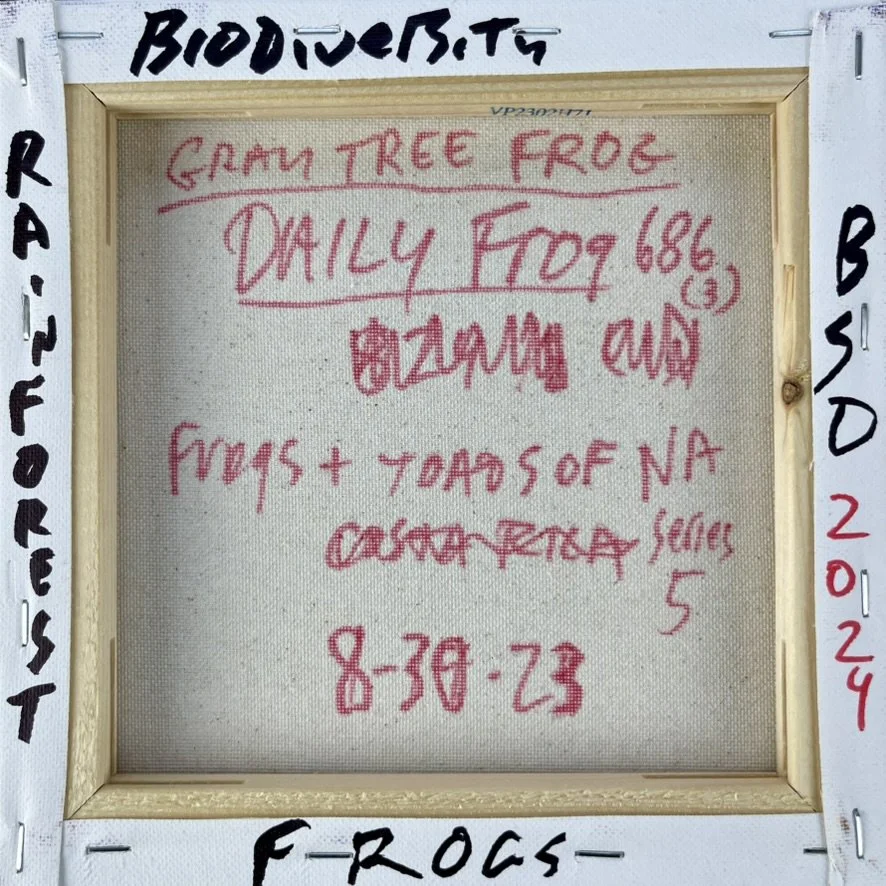 BioDiveRsity
RAiNFOREST
GRAY TREE FROG
DAILY Frog 686
(3)
Frogs + TOADS OF NA
COSTA RICA Series
5
8-30-23
BSD 2024
FROGS